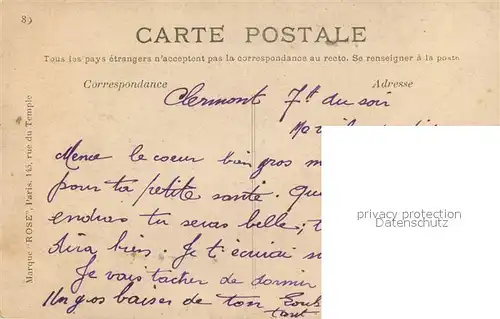 89
CARTE POSTALE
Tous les pays étrangers n'acceptent pas la correspondance au recto. Se renseigner à la poste.
Correspondance
Adresse
Marque "ROSE", Paris. 145, rue du Temple
Clermont 7h du soir
le coeur bien gros
pour ta petite santé.
tu seras belle,
bien. Je t'écrirai
Je vais tacher de dormir
Un gos baiser de ton
tant
privacy protection
Datenschutz